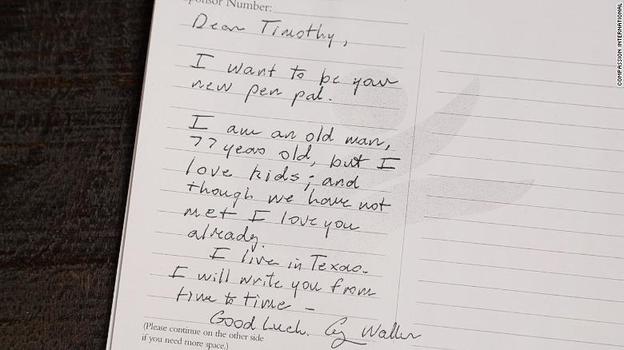 Sponsor Number:
Dear Timothy,
I want to be your
new pen pal.
I am an old man,
77 years old, but I
love kids; and
though we have not
met I love you
already.
I live in Texas.
I will write you from
time to time –
Good Luck. G. Walker
(Please continue on the other side
if you need more space.)
COMPASSION INTERNATIONAL